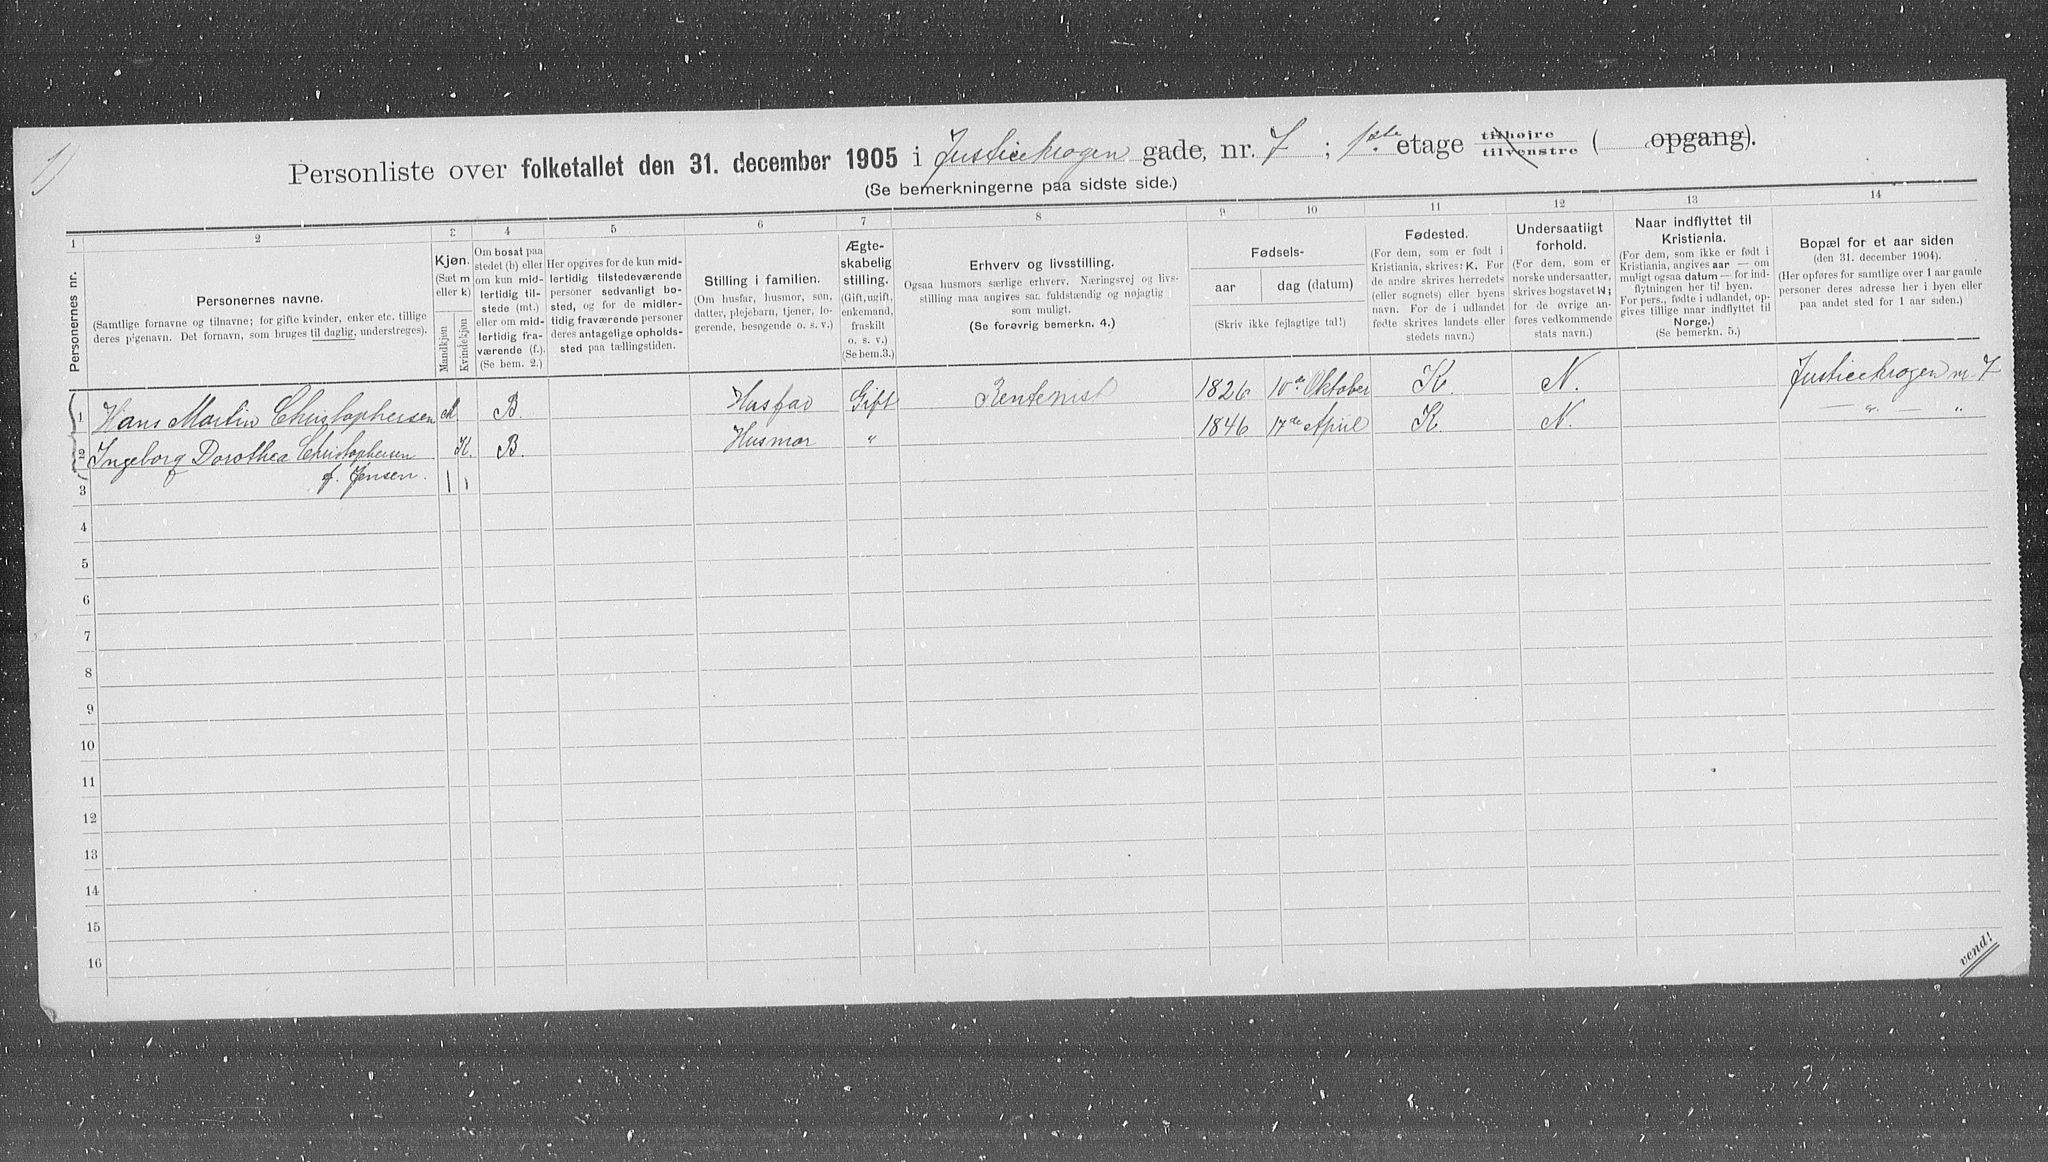 1)
Personliste over folketallet den 31. december 1905 i Justicekrogen gade, nr. 7 ; 1ste etage tilhøjre tilvenstre ( opgang).
(Se bemerkningerne paa sidste side.)
1 2 3 4 5 6 7 8 9 10 11 12 13 14
Personernes nr.
Personernes navne.
(Samtlige fornavne og tilnavne; for gifte kvinder, enker etc. tillige
deres pigenavn. Det fornavn, som bruges til daglig, understreges).
Kjøn.
(Sæt m
eller k)
Mandkjøn
Kvindekjøn
Om bosat paa
stedet (b) eller
om kun mid-
lertidig til-
stede (mt.)
eller om mid-
lertidig fra-
værende (f.).
(Se bem. 2.)
Her opgives for de kun mid-
lertidig tilstedeværende
personer sedvanligt bo-
sted, og for de midler-
tidig fraværende personer
deres antagelige opholds-
sted paa tællingstiden.
Stilling i familien.
(Om husfar, husmor, søn,
datter, plejebarn, tjener, lo-
gerende, besøgende o. s. v.)
Ægte-
skabelig
stilling.
(Gift, ugift,
enkemand,
fraskilt
o. s. v.)
(Se bem.3.)
Erhverv og livsstilling.
Ogsaa husmors særlige erhverv. Næringsvej og livs-
stilling maa angives saa fuldstændig og nøjagtig
som muligt.
(Se forøvrig bemerkn. 4.)
Fødsels-
aar dag (datum)
(Skriv ikke fejlagtige tal!)
Fødested.
(For dem, som er født i
Kristiania, skrives: K. For
de andre skrives herredets
(eller sognets) eller byens
navn. For de i udlandet
fødte skrives landets eller
stedets navn.)
Undersaatligt
forhold.
(For dem, som er
norske undersaatter,
skrives bogstavet N;
for de øvrige an-
føres vedkommende
stats navn.)
Naar indflyttet til
Kristiania.
(For dem, som ikke er født i
Kristiania, angives aar — om
muligt ogsaa datum — for ind-
flytningen her til byen.
For pers., fødte i udlandet, op-
gives tillige naar indflyttet til
Norge.)
(Se bemerkn. 5.)
Bopæl for et aar siden
(den 31. december 1904).
(Her opføres for samtlige over 1 aar gamle
personer deres adresse her i byen eller
paa andet sted for 1 aar siden.)
1 Hans Martin Christophersen M B. Husfar Gift Rentenist 1826 10de Oktober K. N. Justicekrogen nr. 7
2 Ingeborg Dorothea Christophersen K. B. Husmor " 1846 17de April K. N. — " — "
3 f. Jensen. 1 1
4
5
6
7
8
9
10
11
12
13
14
15
16
vend!